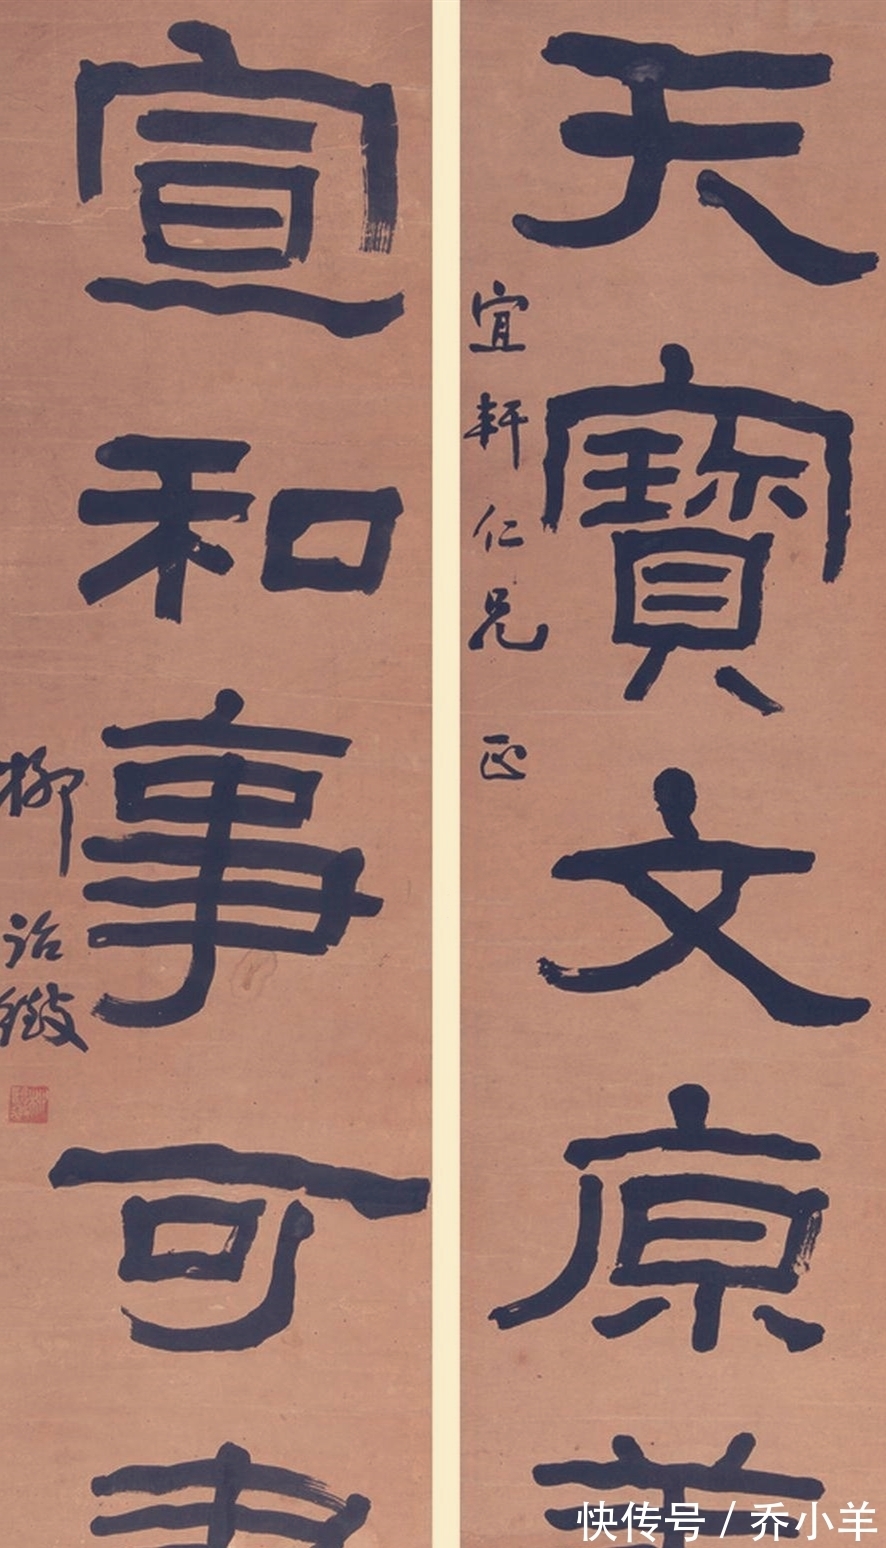 天寶文原
宜軒仁兄 正
宣和事可
柳詒徵
快传号 / 乔小羊